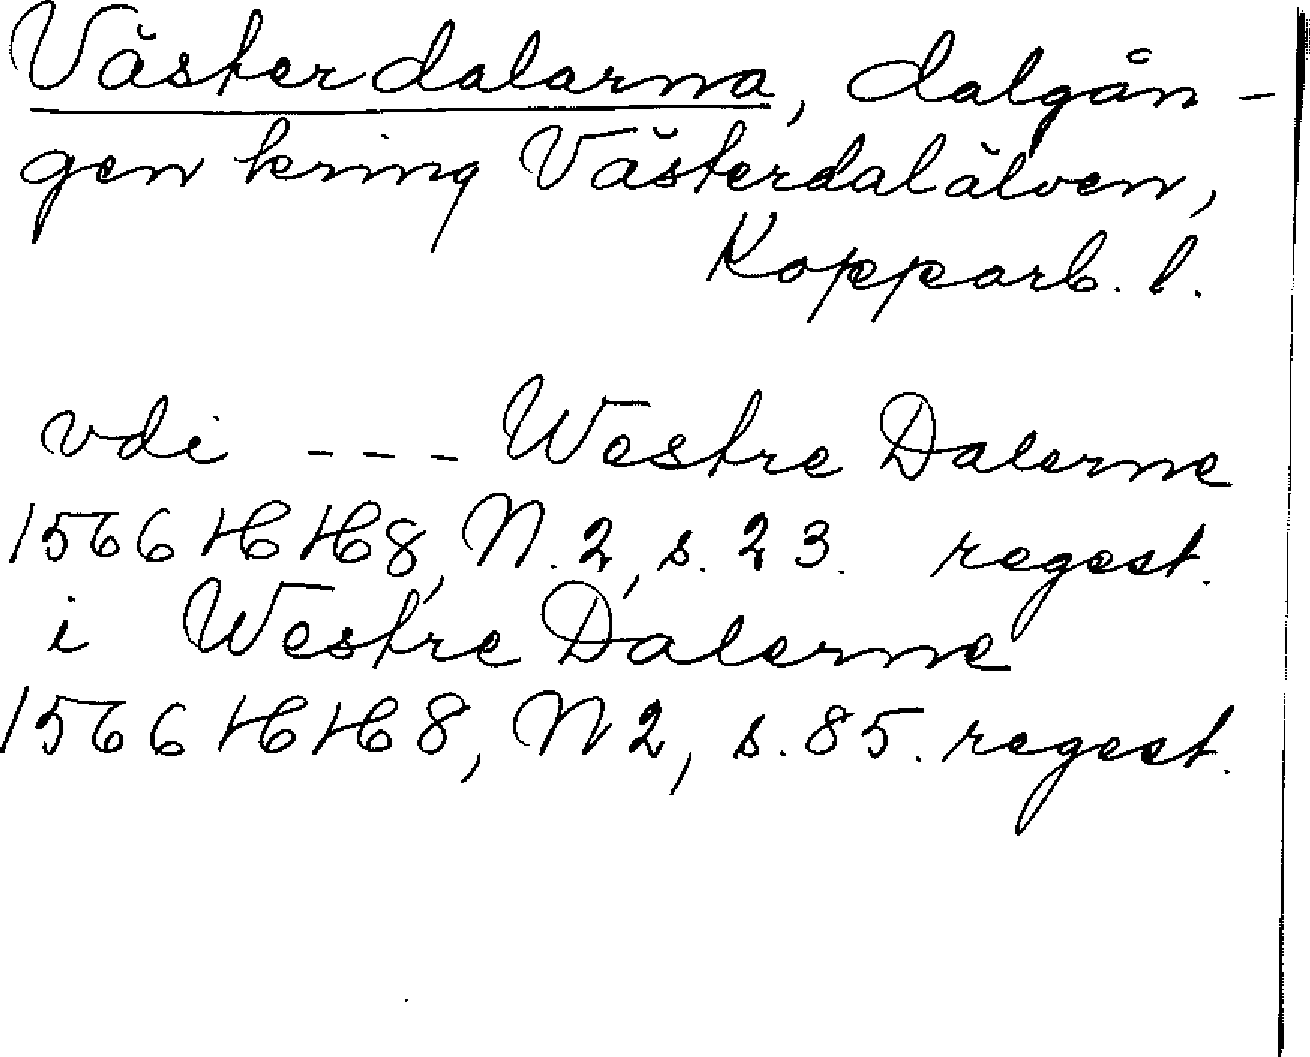 Västerdalarna, dalgån-
gen kring Västerdalälven,
Kopparb. l.
vdi --- Westre Dalerne
1566 HH8, N. 2, s. 23. regest.
i Westre Dalerne
1566 HH8, N 2, s. 85. regest.